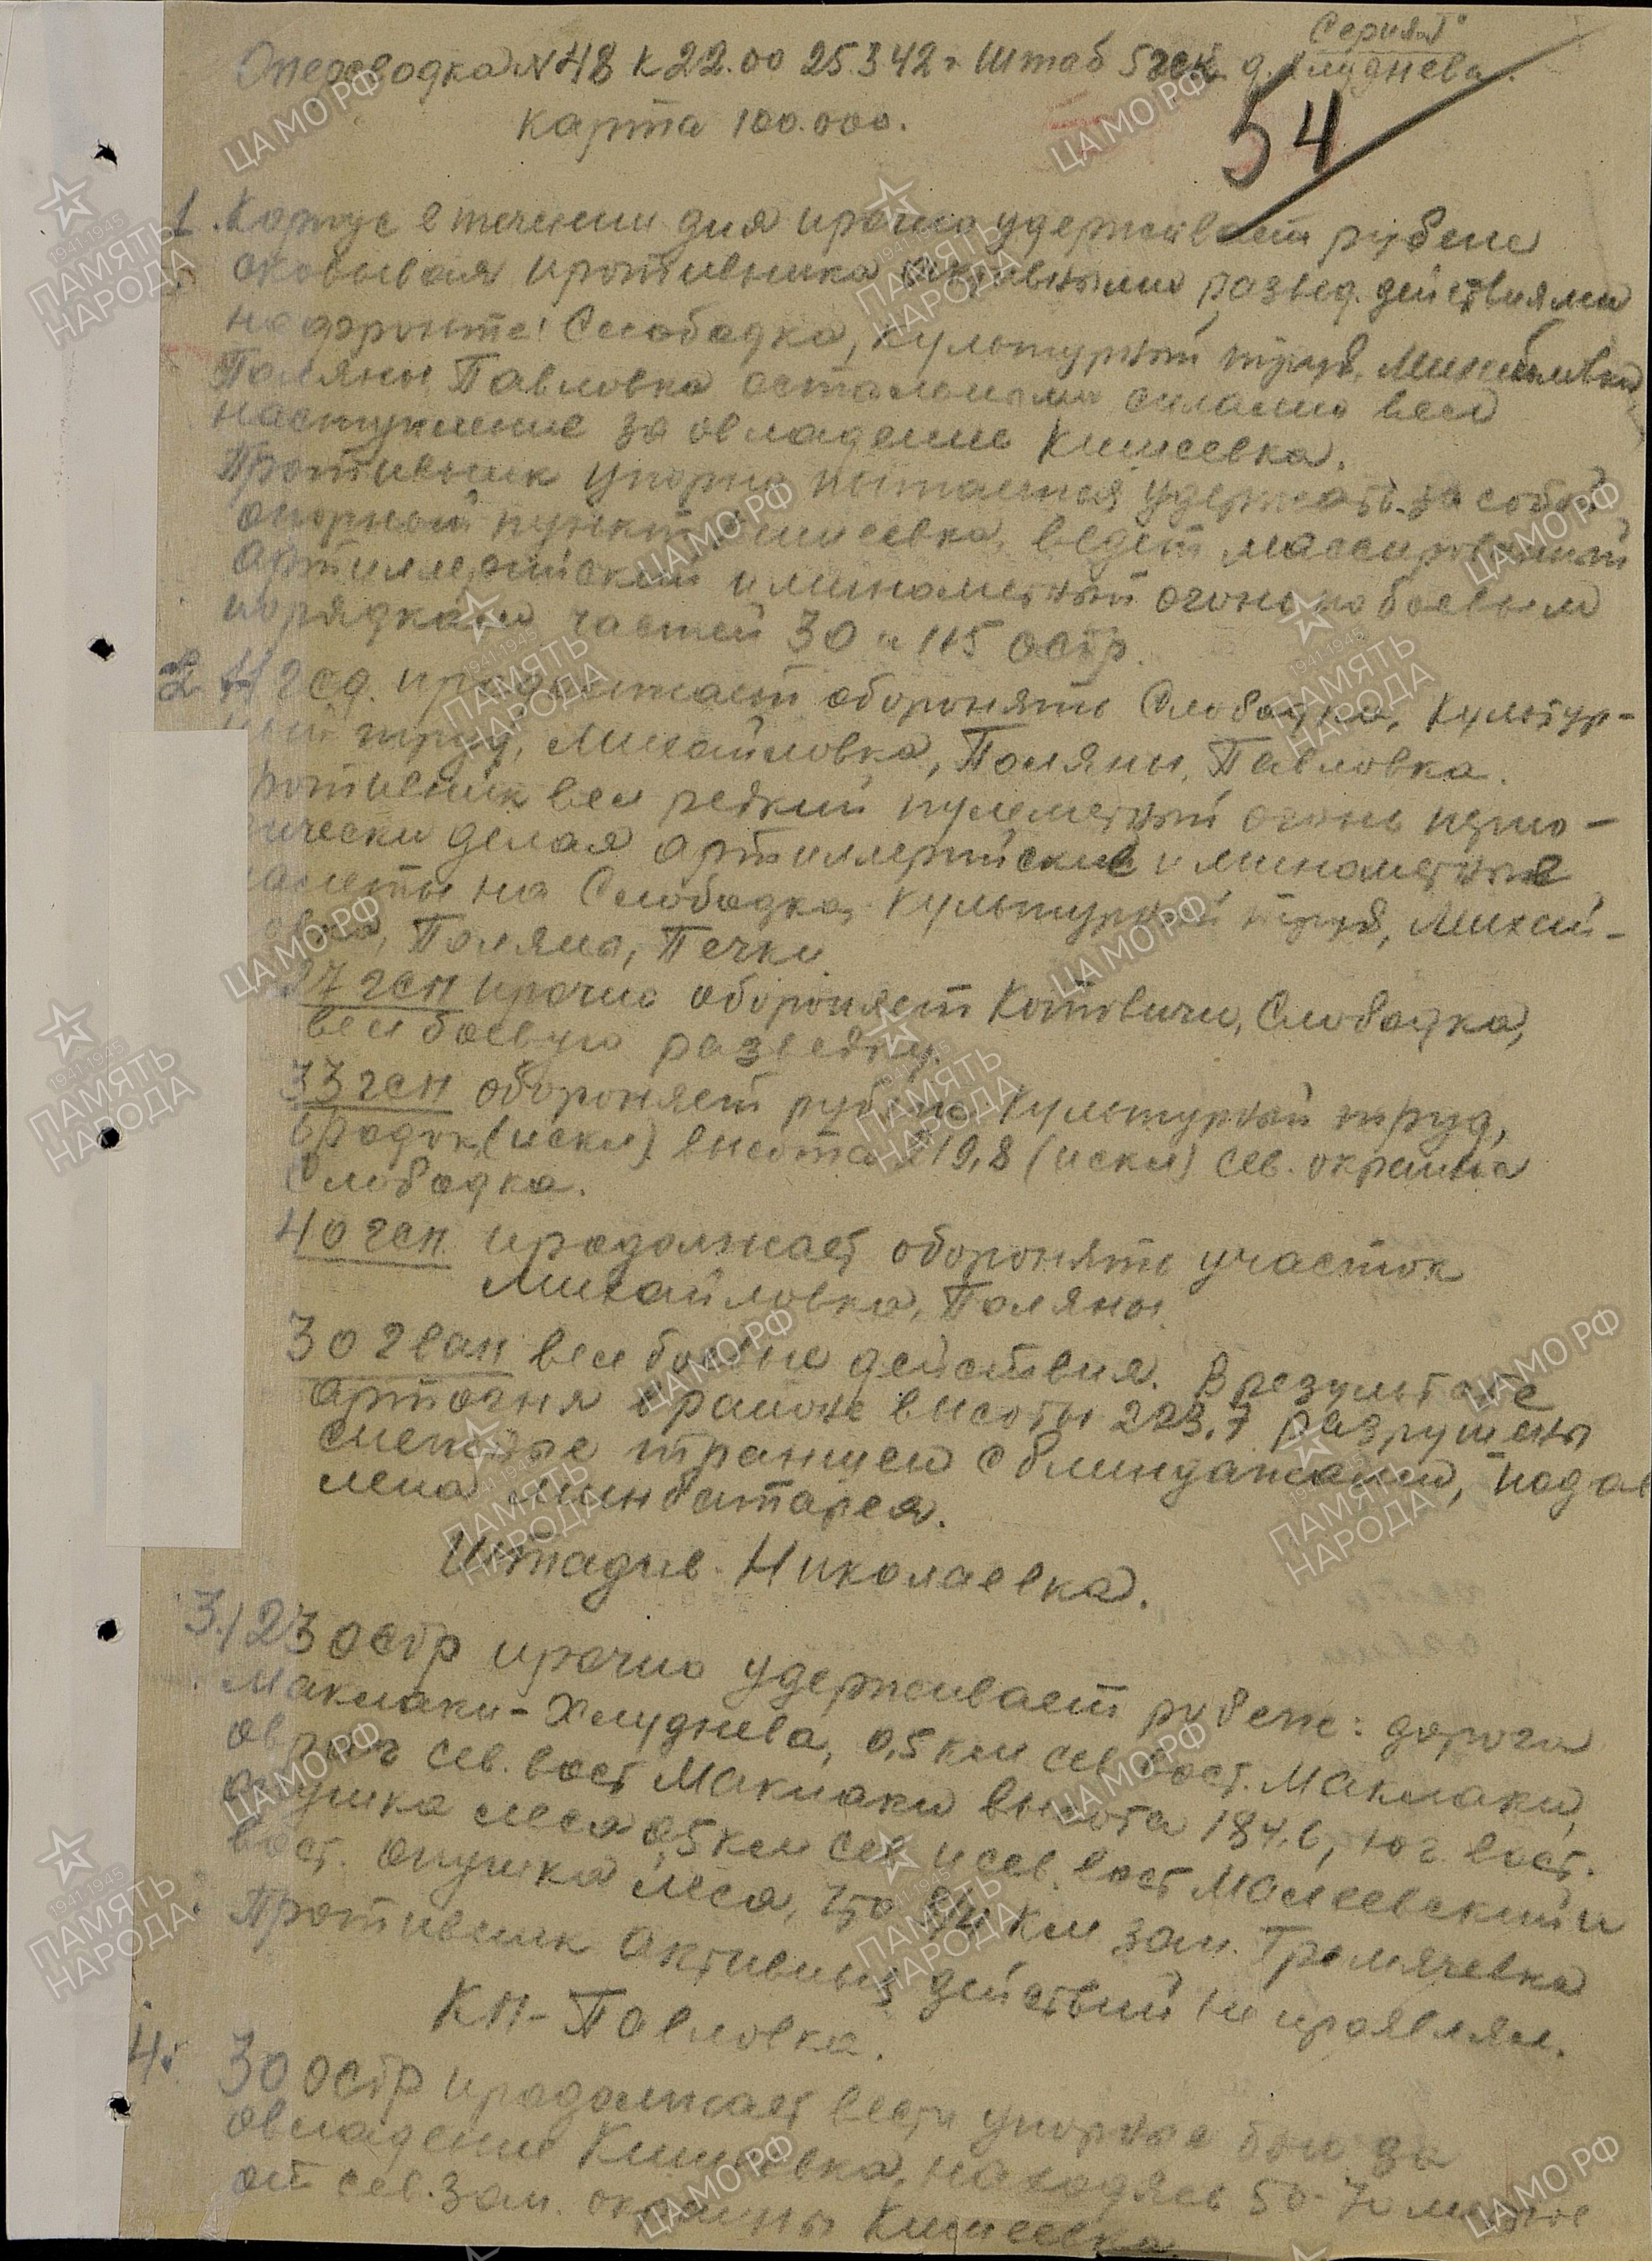 Серия
Опедсводка №48 к 22.00 25.3 42 г Штаб 5 гск д. Хлуднева.
54
карта 100.000.
1. Корпус в течении дня прочно удерживает рубеж
сковывая противника активными развед. действиями
на фронте: Слободка, Культурный труд, Михайловка
Поляны Павловка остальными силами вел
наступление за овладение Кишеевка.
Противник упорно пытается удержать за собой
опорный пункт Кишеевка, ведет массированный
артиллерийский и минометный огонь по боевым
порядкам частей 30 и 115 осбр.
2. 11 гсд. продолжает оборонять Слободка, Культур-
ный труд, Михайловка, Поляны, Павловка.
ротивник вел редкий пулеметный огонь перио-
ически делая артиллерийские и минометные
алеты на Слободка, Культурный труд, Михай-
овка, Поляна, Печки
27 гсп прочно обороняет Котовичи, Слободка,
вел боевую разведку.
33 гсп обороняет рубеж Культурный труд,
Бродок (искл) высота 219,8 (искл) сев. окраина
Слободка.
40 гсп. продолжает оборонять участок
Михайловка, Поляны.
30 гвап вел боевые действия. В результате
артогня в районе высоты 223,7 разрушены
снежные траншеи с блиндажами, подав
лена минбатарея.
Штадив - Николаевка.
3.) 23 осбр прочно удерживает рубеж: дорога
Маклаки - Хлуднева, 0,5 км сев. вост. Маклаки,
овраг сев. вост Маклаки высота 184.6, юг. вост.
опушка леса 0,5 км сев. и сев. вост Малеевский и
вост. опушка леса, что 3/4 км зап. Гремячевка
Противник активных действий не проявлял.
КП - Павловка.
4. 30 осбр продолжает вести упорные бои за
овладение Кишеевка, находясь 50-70 метров
от сев. зап. окраины Кишеевка.